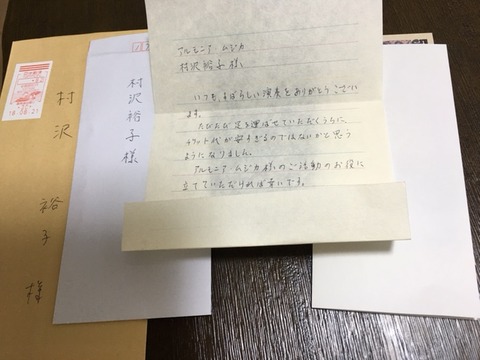 アルモニア・ムジカ
村沢裕子様
いつも、すばらしい演奏をありがとうござい
ます。
たびたび足を運ばせていただくうちに、
チケット代が安すぎるのではないかと思う
ようになりました。
アルモニア・ムジカ様のご活動のお役に
立てていただければ幸いです。
村沢裕子様
村沢 裕子 様